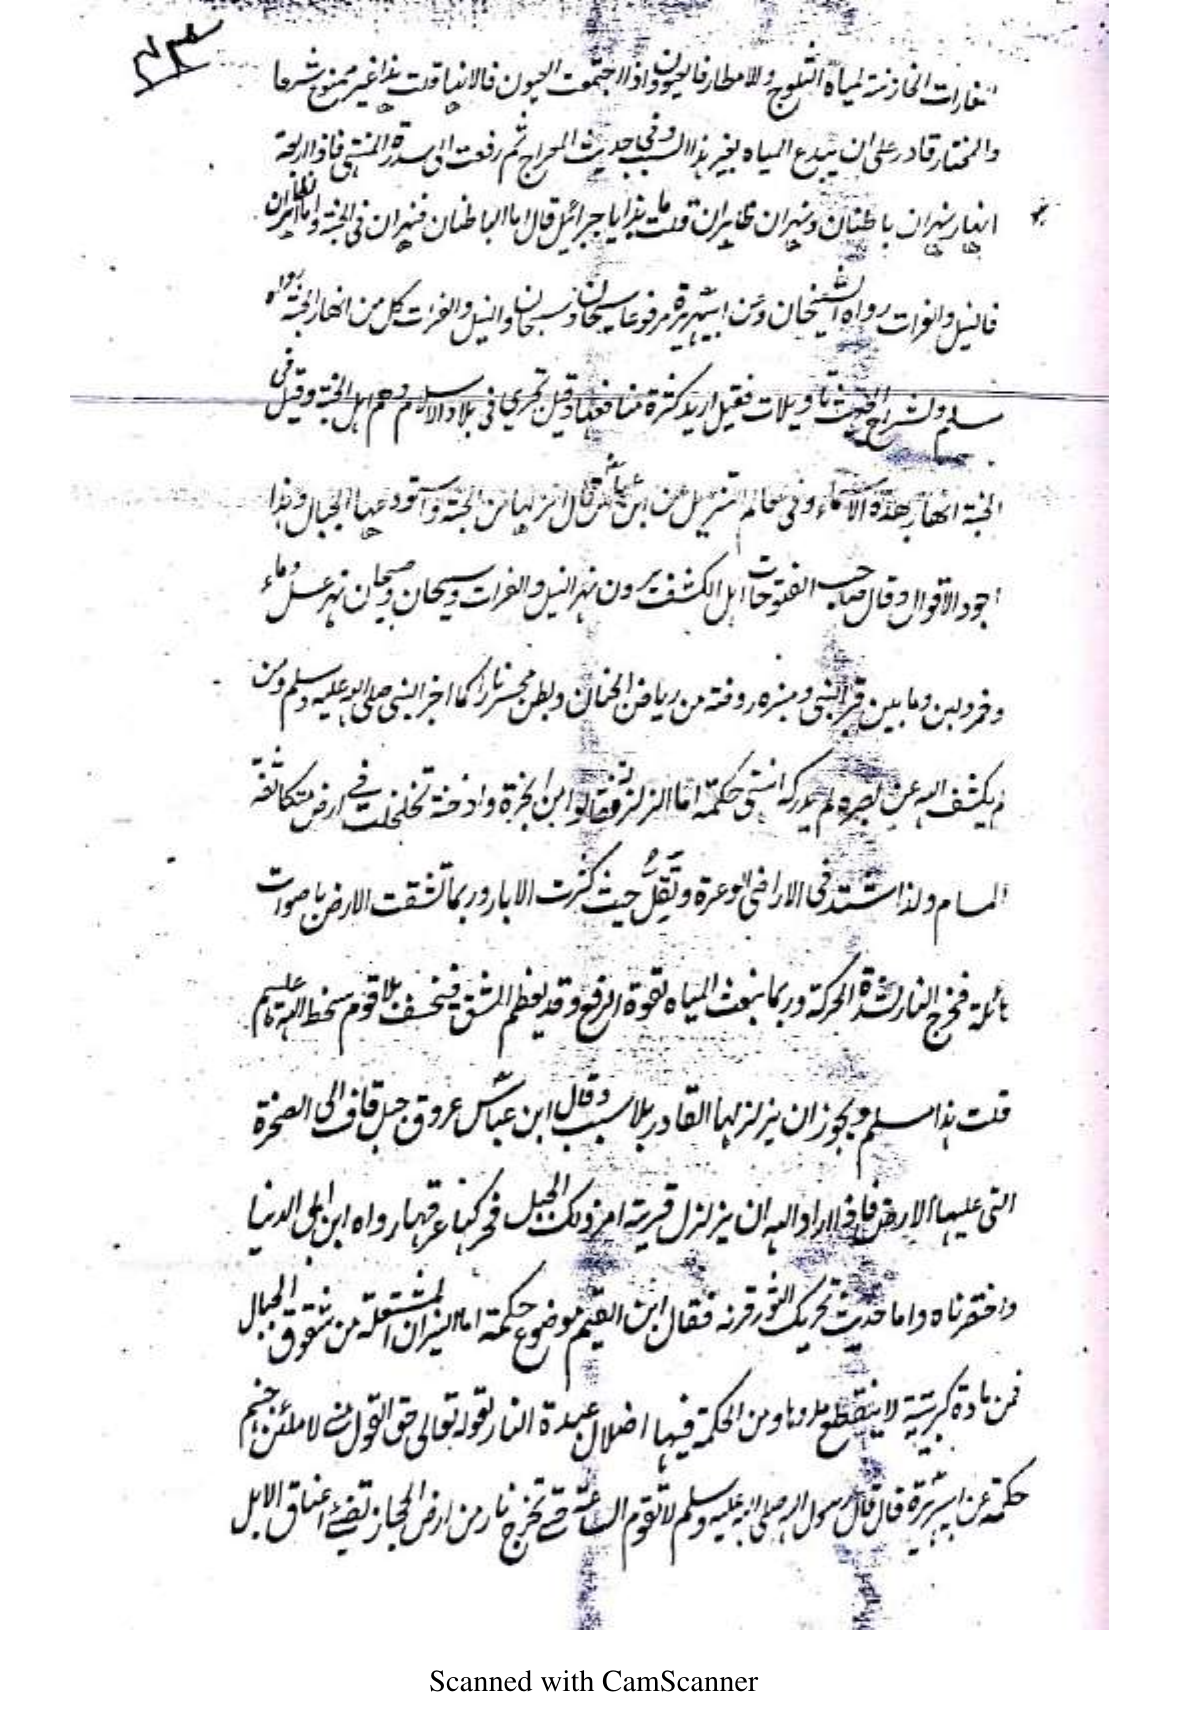 المغارات الخازنة لمياه الثلوج والامطار فالعيون واذا اجتمعت العيون فالانهار قلت هذا غير ممنوع شرعا
والمختار قادر على ان يبدع المياه بغير هذا السبب وفي حديث المعراج ثم رفعت الى سدرة المنتهى فاذا اربعة
انهار نهران باطنان ونهران ظاهران قلت ما هذا يا جبرائيل قال اما الباطنان فنهران في الجنة واما الظاهران
فالنيل والفرات رواه الشيخان وعن ابي هريرة مرفوعا سيحان وجيحان والنيل والفرات كل من انهار الجنة رواه
مسلم ولشراح الحديث تاويلات فقيل اريد كثرة منافعها وقيل تجري في بلاد الاسلام وهم اهل الجنة وقيل في
الجنة انهار بهذه الاسماء وفي معالم التنزيل عن ابن عباس قال انزلها من الجنة واستودعها الجبال وهذا
اجود الاقوال وقال صاحب الفتوحات اهل الكشف يرون نهر النيل والفرات وسيحان وجيحان نهر عسل وماء
وخمر ولبن وما بين قبر النبي ومنبره روضة من رياض الجنان وبطن محسر نارا كما اخبر النبي صلى الله عليه وسلم ومن
لم يكشف الله عن بصره لم يدركه انتهى حكمة اما الزلزلة فقالوا ابن ابخرة وادخنة تخلخلت في ارض متكاثفة
المسام ولذا تشتد في الاراضي الوعرة وتقل حيث كثرت الابار وربما تشقت الارض باصوات
هائلة فخرج النار لشدة الحركة وربما ينبعث المياه لقوة الرفع وقد يعظم الشق فينخسف بلاد قوم سخط الله عليهم
قلت هذا مسلم ويجوز ان يزلزلها القادر بلا سبب وقال ابن عباس عروق جبل قاف الى الصخرة
التي عليها الارض فاذا اراد الله ان يزلزل قرية امر ذلك الجبل فحرك عرقها رواه ابن ابي الدنيا
واختصرناه واما حديث تحريك الثور قرنه فقال ابن القيم موضوع حكمة اما النيران المشتعلة من شقوق الجبال
فمن مادة كبريتية لا ينقطع مددها ومن الحكمة فيها اضلال عبدة النار لقوله تعالى حق القول مني لاملئن جهنم
حكمة عن ابي هريرة قال قال رسول الله صلى الله عليه وسلم لا تقوم الساعة حتى تخرج نار من ارض الحجاز تضيء اعناق الابل
Scanned with CamScanner